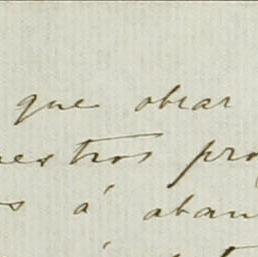 que obrar
nestros pro
s á aban